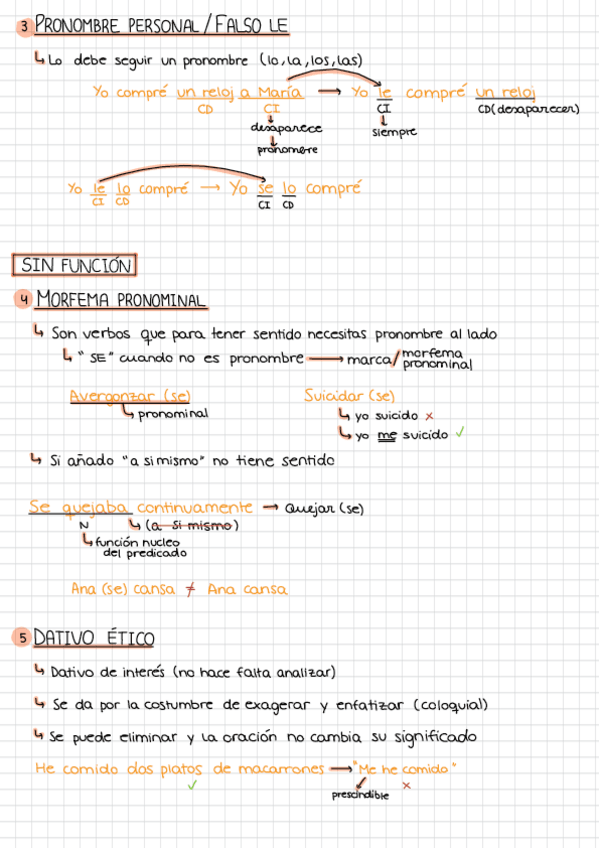 3 PRONOMBRE PERSONAL / FALSO LE
↳ Lo debe seguir un pronombre (lo, la, los, las)
Yo compré un reloj a María → Yo le compré un reloj
CD CI CI CD (desaparecer)
desaparece siempre
pronombre
Yo le lo compré → Yo se lo compré
CI CD CI CD
SIN FUNCIÓN
4 MORFEMA PRONOMINAL
↳ Son verbos que para tener sentido necesitas pronombre al lado
↳ "SE" cuando no es pronombre → marca/morfema pronominal
Avergonzar (se) Suicidar (se)
↳ pronominal ↳ yo suicido ×
↳ yo me suicido ✓
↳ Si añado "a si mismo" no tiene sentido
Se quejaba continuamente → Quejar (se)
N ↳ (a si mismo)
↳ función nucleo
del predicado
Ana (se) cansa ≠ Ana cansa
5 DATIVO ÉTICO
↳ Dativo de interés (no hace falta analizar)
↳ Se da por la costumbre de exagerar y enfatizar (coloquial)
↳ Se puede eliminar y la oración no cambia su significado
He comido dos platos de macarrones → "Me he comido"
✓ prescindible ×